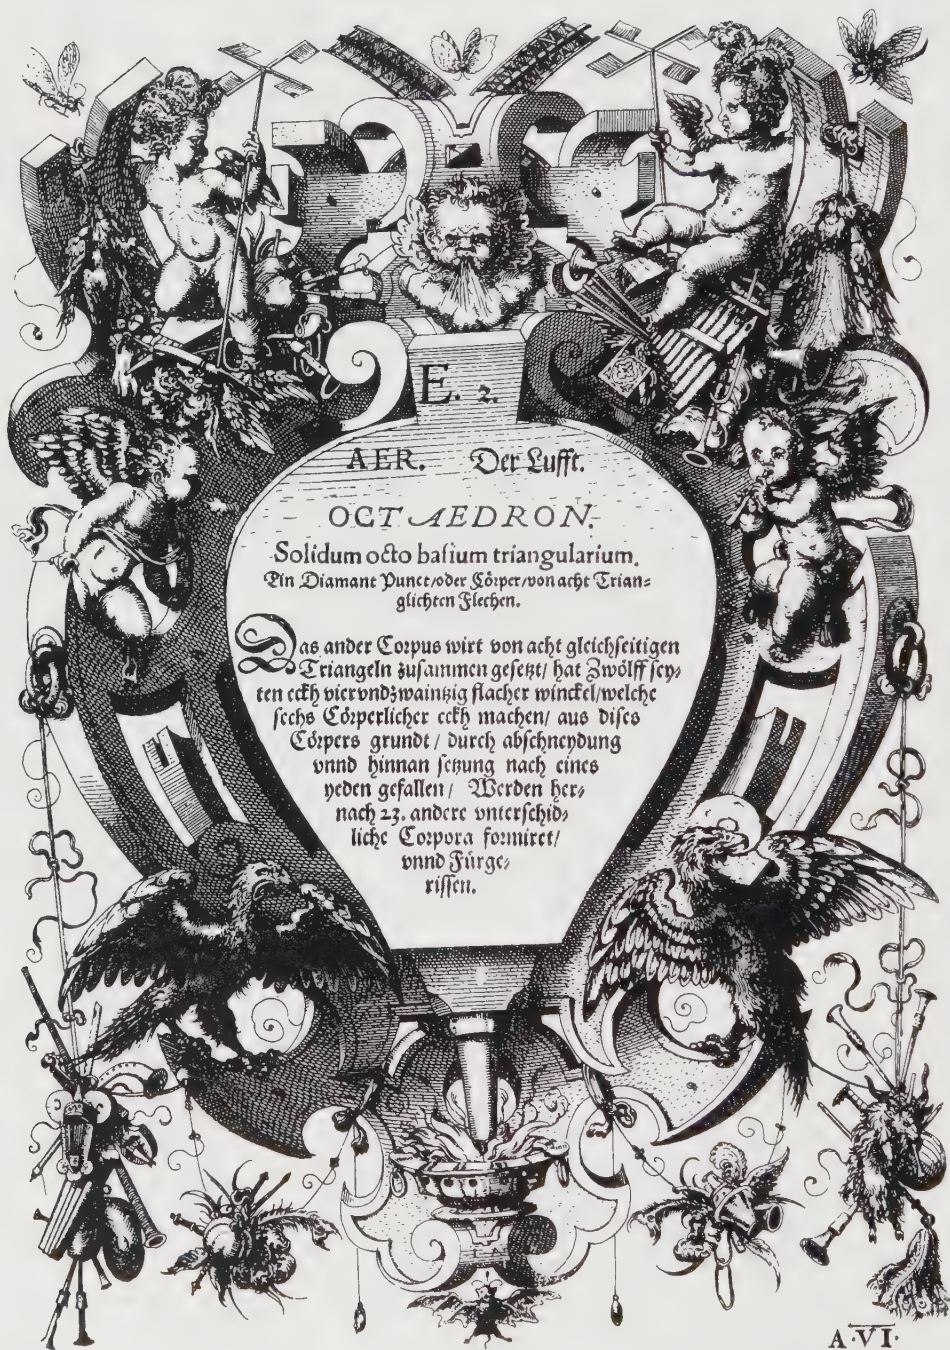 E. 2.
AER. Der Lufft.
OCTAEDRON.
Solidum octo basium triangularium.
Ein Diamant Punct/oder Cörper/von acht Trian⸗
glichten Flechen.
Das ander Corpus wirt von acht gleichseitigen
Triangeln zusammen gesetzt/ hat Zwölff sey⸗
ten eckh vierundzwaintzig flacher winckel/welche
sechs Cörperlicher eckh machen/ aus dises
Cörpers grundt/ durch abschneydung
vnnd hinnan setzung nach eines
yeden gefallen/ Werden her⸗
nach 23. andere vnterschid⸗
liche Corpora formiret/
vnnd Fürge⸗
rissen.
A·VI·